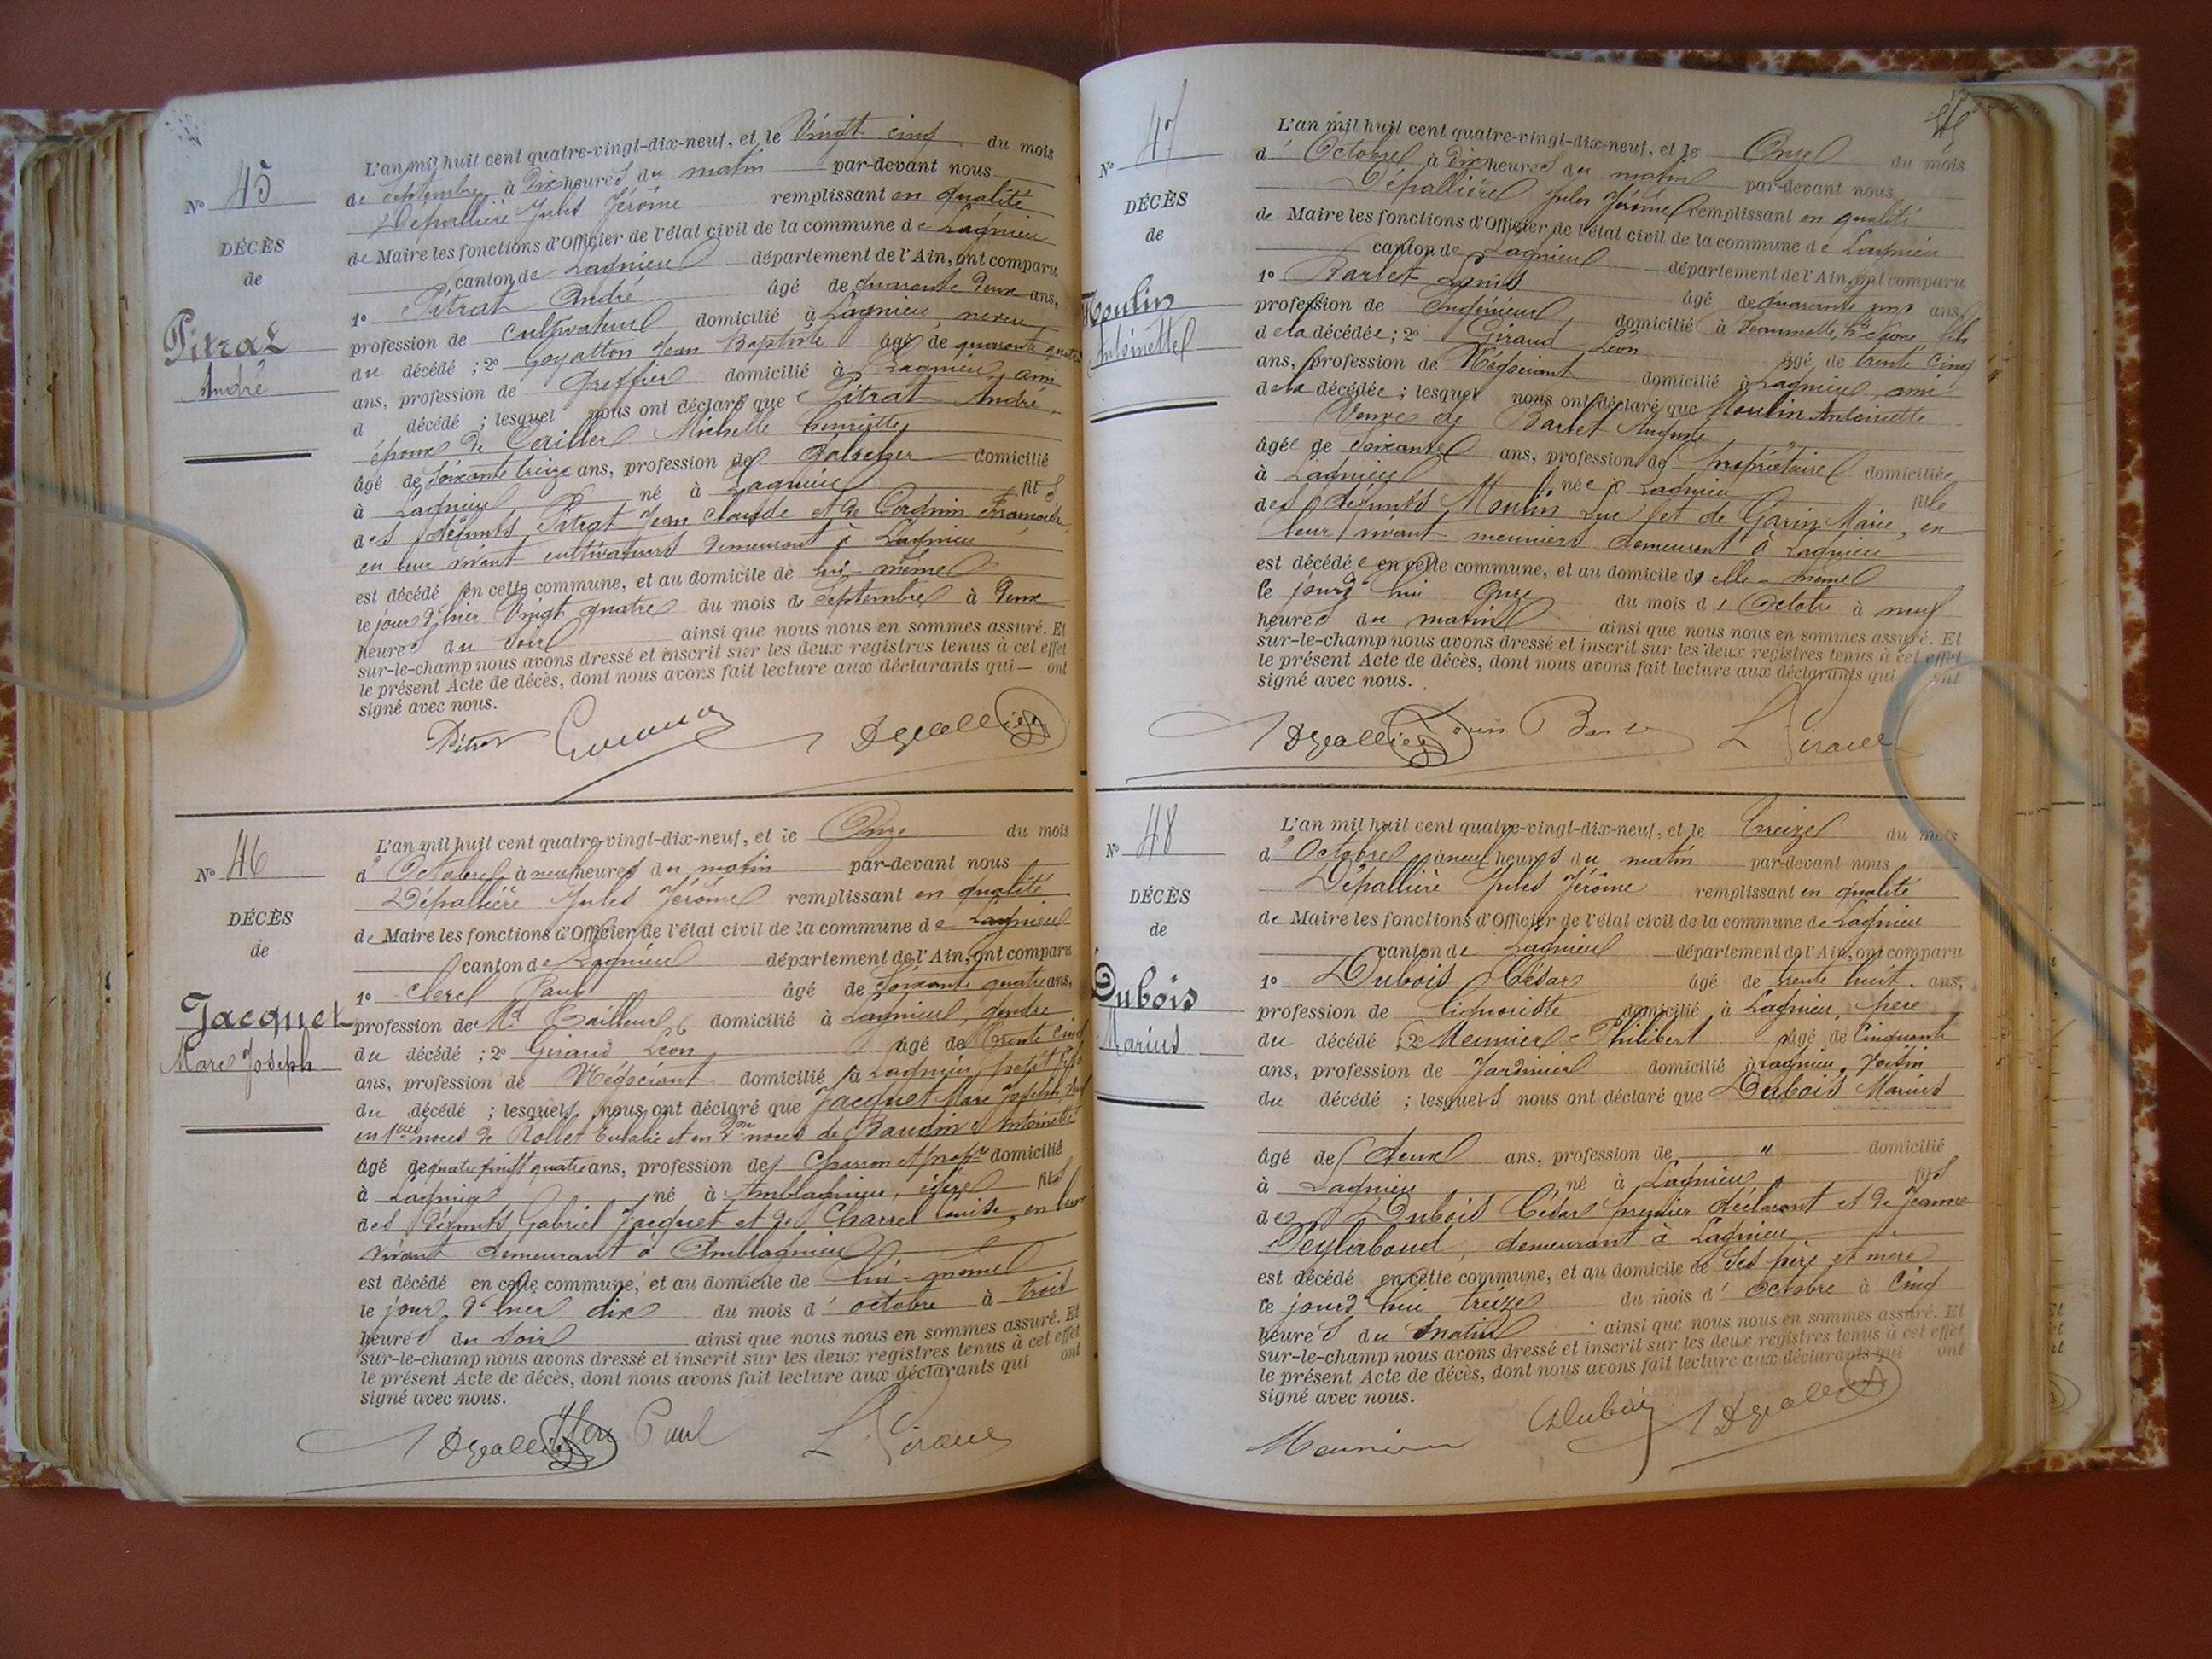 N° 45
DÉCÈS
de
Pitrat
André
L'an mil huit cent quatre-vingt-dix-neuf, et le Vingt cinq du mois
de Septembre à Dix heures du matin par-devant nous
Dépallière Jules Jérôme remplissant en qualité
de Maire les fonctions d'Officier de l'état civil de la commune de Lagnieu
canton de Lagnieu département de l'Ain, ont comparu
1° Pitrat André âgé de quarante deux ans,
profession de Cultivateur domicilié à Lagnieu, neveu
du décédé ; 2° Goyatton Jean Baptiste âgé de quarante quatre
ans, profession de Greffier domicilié à Lagnieu, ami
d décédé ; lesquel nous ont déclaré que Pitrat André
époux de Cailler Michelle Henriette
âgé de Soixante treize ans, profession de domicilié
à Lagnieu né à Lagnieu fils
des défunts Pitrat Jean Claude et de
en leur vivant cultivateurs demeurant à Lagnieu
est décédé en cette commune, et au domicile de lui-même
le jour d'hier Vingt quatre du mois de Septembre à deux
heures du Soir ainsi que nous nous en sommes assuré. Et
sur-le-champ nous avons dressé et inscrit sur les deux registres tenus à cet effet
le présent Acte de décès, dont nous avons fait lecture aux déclarants qui — ont
signé avec nous.
Pitrat
N° 46
DÉCÈS
de
Jacquet
Marc Joseph
L'an mil huit cent quatre-vingt-dix-neuf, et le Onze du mois
d'Octobre à neuf heures du matin par-devant nous
Dépallière Jules Jérôme remplissant en qualité
de Maire les fonctions d'Officier de l'état civil de la commune de Lagnieu
canton de Lagnieu département de l'Ain, ont comparu
1° Clerc Paul âgé de Soixante quatre ans,
profession de Md Tailleur domicilié à Lagnieu, gendre
du décédé ; 2° Giraud Léon âgé de Trente Cinq
ans, profession de Négociant domicilié à Lagnieu, petit fils
du décédé ; lesquels nous ont déclaré que Jacquet Marc Joseph, Veuf
en 1ères noces de Rollet Eulalie et en 2me noces de Baudin Antoinette
âgé de quatre vingt quatre ans, profession de Charron et propre domicilié
à Lagnieu né à Amblagnieu, isère fils
des défunts Gabriel Jacquet et de Charrel Louise, en leur
vivant demeurant à Amblagnieu
est décédé en cette commune, et au domicile de lui-même
le jour d'hier dix du mois d'octobre à trois
heures du Soir ainsi que nous nous en sommes assuré. Et
sur-le-champ nous avons dressé et inscrit sur les deux registres tenus à cet effet
le présent Acte de décès, dont nous avons fait lecture aux déclarants qui ont
signé avec nous.
Clerc Paul L Giraud
N° 47
DÉCÈS
de
Moulin
Antoinette
L'an mil huit cent quatre-vingt-dix-neuf, et le Onze du mois
d'Octobre à Dix heures du matin par-devant nous
Dépallière Jules Jérôme remplissant en qualité
de Maire les fonctions d'Officier de l'état civil de la commune de Lagnieu
canton de Lagnieu département de l'Ain, ont comparu
1° Barlet Louis âgé de quarante ans,
profession de Ingénieur domicilié à fils
de la décédée ; 2° Giraud Léon âgé de trente Cinq
ans, profession de Négociant domicilié à Lagnieu, ami
de la décédée ; lesquel nous ont déclaré que Moulin Antoinette
Veuve de Barlet Auguste
âgée de Soixante ans, profession de propriétaire domiciliée
à Lagnieu née à Lagnieu fille
des défunts Moulin Luc et de Garin Marie, en
leur vivant meuniers demeurant à Lagnieu
est décédée en cette commune, et au domicile de elle-même
le jourd'hui Onze du mois d'Octobre à neuf
heures du matin ainsi que nous nous en sommes assuré. Et
sur-le-champ nous avons dressé et inscrit sur les deux registres tenus à cet effet
le présent Acte de décès, dont nous avons fait lecture aux déclarants qui ont
signé avec nous.
Louis L Giraud
N° 48
DÉCÈS
de
Dubois
Marius
L'an mil huit cent quatre-vingt-dix-neuf, et le Treize du mois
d'Octobre à neuf heures du matin par-devant nous
Dépallière Jules Jérôme remplissant en qualité
de Maire les fonctions d'Officier de l'état civil de la commune de Lagnieu
canton de Lagnieu département de l'Ain, ont comparu
1° Dubois César âgé de trente huit ans,
profession de liquoriste domicilié à Lagnieu, père
du décédé ; 2° Meunier Philibert âgé de Cinquante
ans, profession de Jardinier domicilié à Lagnieu, Voisin
du décédé ; lesquels nous ont déclaré que Dubois Marius
âgé de deux ans, profession de " domicilié
à Lagnieu né à Lagnieu fils
de Dubois César premier déclarant et de Jeanne
Peylaboud, demeurant à Lagnieu
est décédé en cette commune, et au domicile de Ses père et mère
le jourd'hui treize du mois d'Octobre à Cinq
heures du matin ainsi que nous nous en sommes assuré. Et
sur-le-champ nous avons dressé et inscrit sur les deux registres tenus à cet effet
le présent Acte de décès, dont nous avons fait lecture aux déclarants qui ont
signé avec nous.
Dubois
Meunier